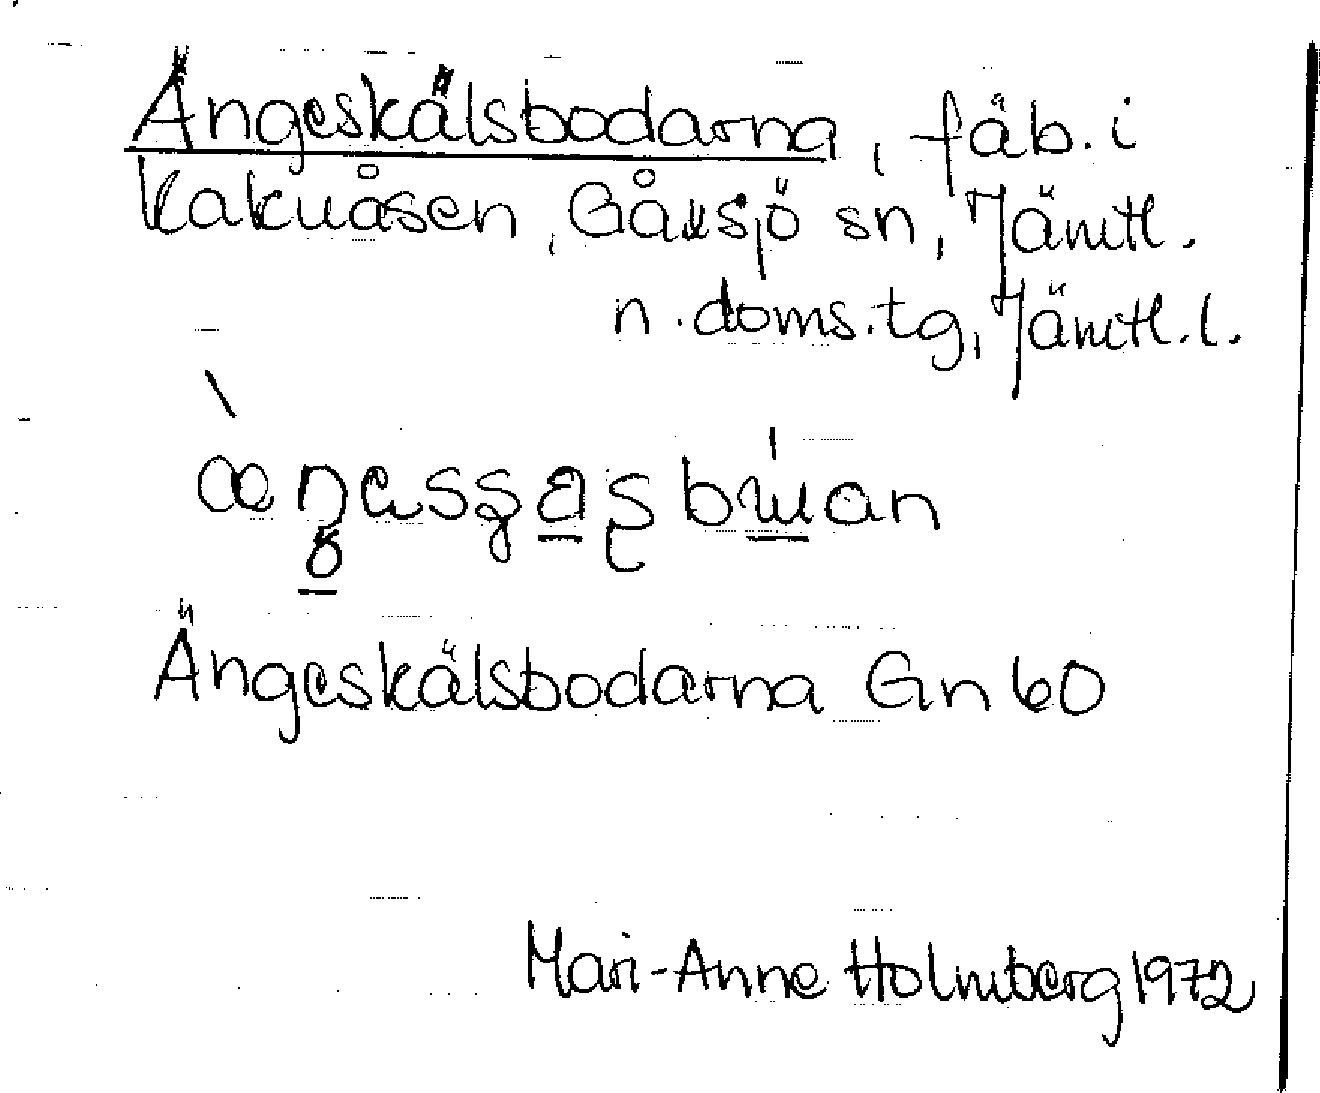 Ängeskälsbodarna, fäb. i
Kakuåsen, Gåxsjö sn, Jämtl.
n. doms. tg, Jämtl. l.
Ängeskälsbodarna Gn 60
Mari-Anne Holmberg 1972